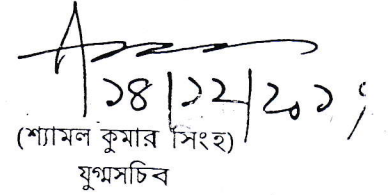 ১৪|১২|২০১
(শ্যামল কুমার সিংহ)
যুগ্মসচিব